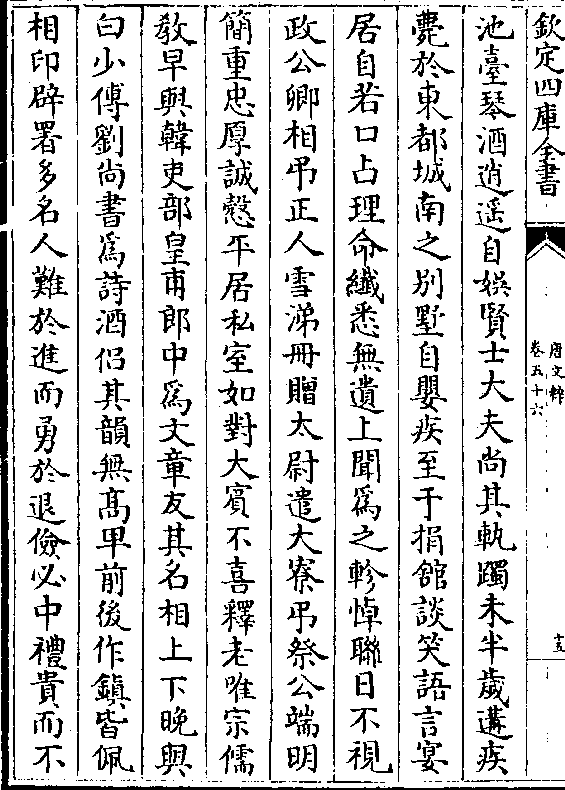 欽定四庫全書
唐文粹
卷五十六
十五
池臺琴酒逍遥自娱賢士大夫尚其軌躅未半歳遘疾
薨於東都城南之別墅自嬰疾至于捐舘談笑語言宴
居自若口占理命纎悉無遺上聞爲之軫悼聯日不視
政公卿相弔正人雪涕冊贈太尉遣大寮弔祭公端明
簡重忠厚誠慤平居私室如對大賔不喜釋老唯宗儒
教早與韓吏部皇甫郎中爲文章友其名相上下晩與
白少傅劉尚書爲詩酒侣其韻無髙卑前後作鎮皆佩
相印辟署多名人難於進而勇於退儉必中禮貴而不